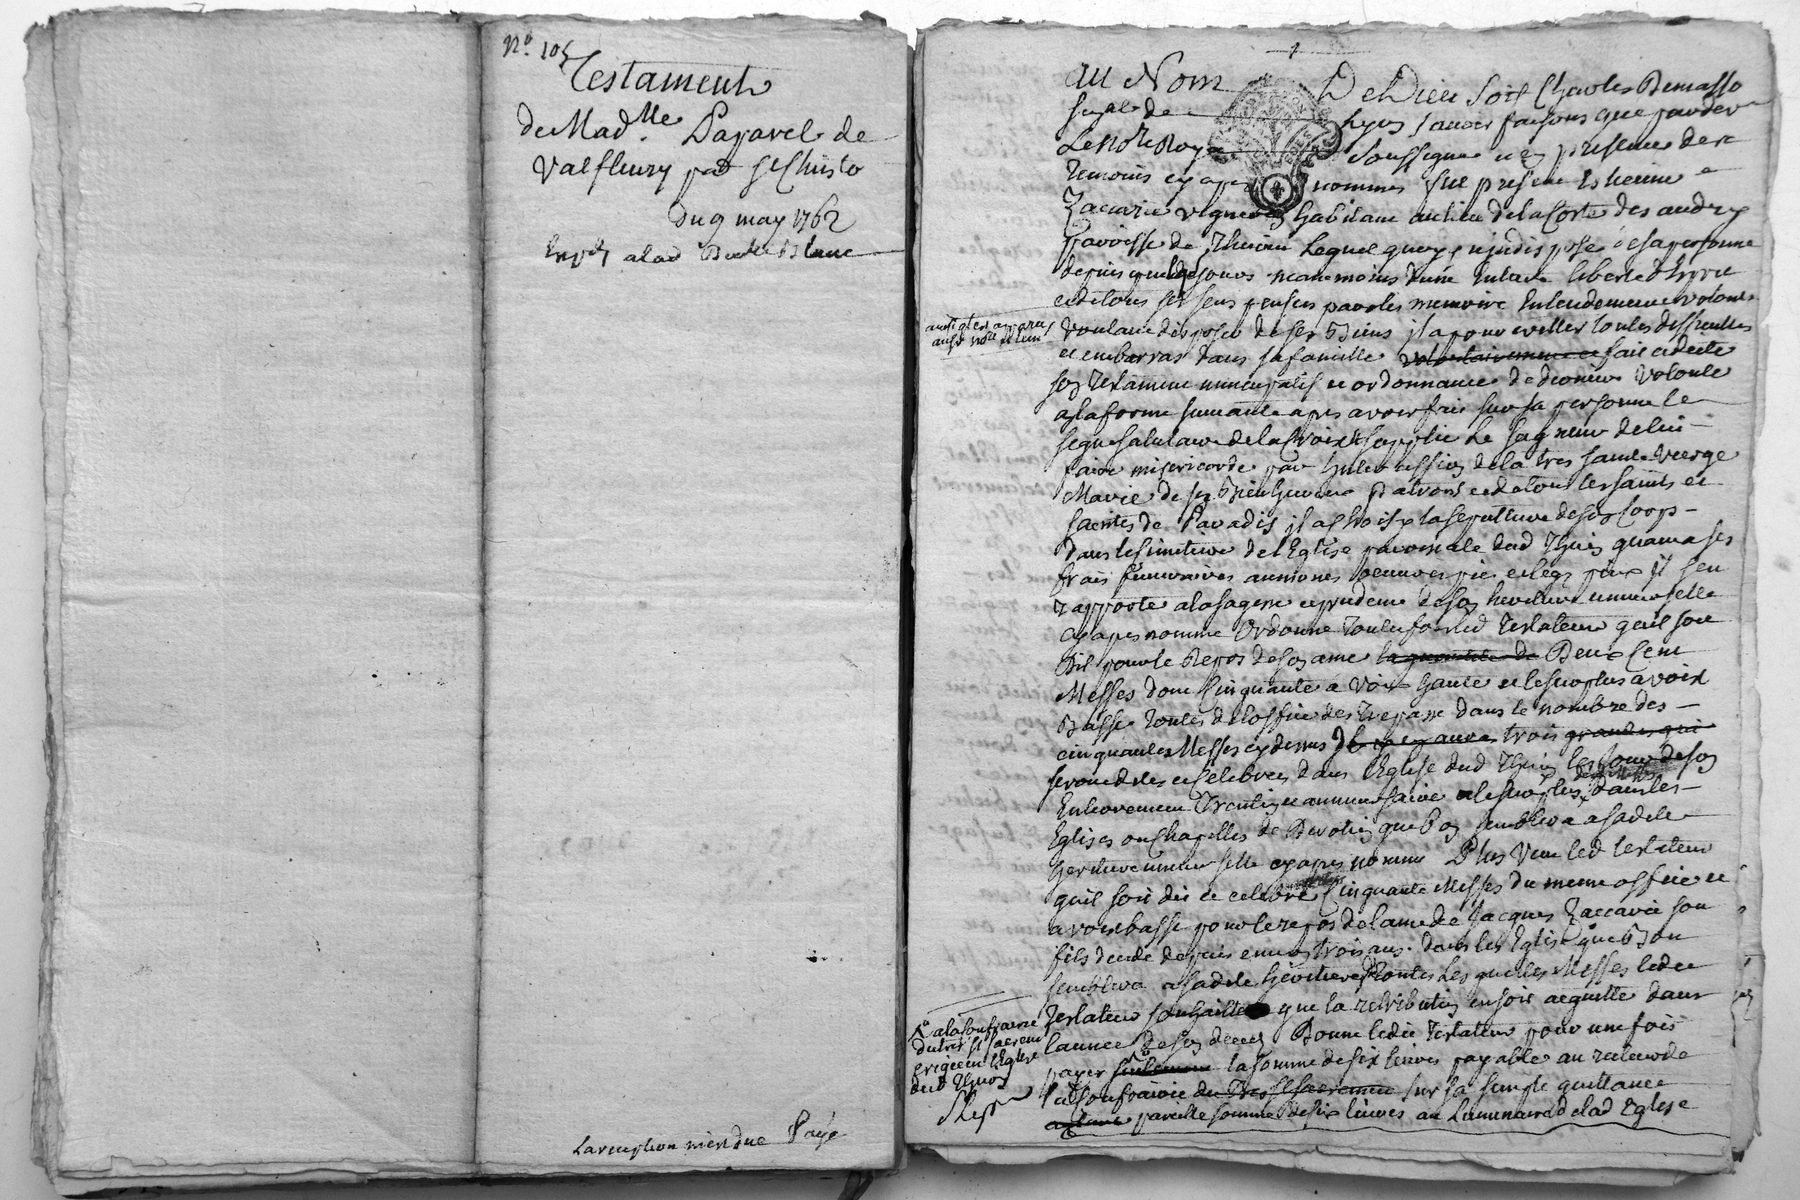 N.º 105
Testament
de Mad.lle Paparel de
Valfleury pd St Christo
du 9 may 1762
a lad
La reception m'est due Payé
Au Nom De Dieu Soit Charles Demasso
Lyon savoir faisons que pardev
Le Notre Roya soussigné et en presence des
Temoins cy apres nommes fut present Estienne
Zaccarie vigneron habitant au lieu de la Coste des andry
paroisse de Thurin Lequel quoyq indisposé de sa personne
depuis quelqs jours neanmoins d'une entiere liberté d'Esprit
et de tous ses sens pensees paroles memoire Entendement et volonte
Voulant disposer de ses Biens il a pour eviter toutes difficultes
et embarras dans sa famille volontairement fait et dicté
son Testament nuncupatif et ordonnance de derniere volonté
a la forme suivante apres avoir fait sur sa personne le
signe salutaire de la Croix supplie Le seigneur de lui
faire misericorde par Intercession de la tres sainte vierge
Marie de ses Bienheureux Patrons et de tous les saints et
saintes de Paradis il a choisy la sepulture de son Corps
dans le simetiere de l'Eglise paroissiale dud Thurin quant a ses
frais funeraires aumones œuvres pies et legs pieux il s'en
rapporte a la sagesse et prudence de son heritiere universelle
cy apres nommée Ordonne toutesfois led Testateur quil soit
Dit pour le Repos de son ame la quantité de Deux Cent
Messes dont Cinquante a Voix haute et le surplus a voix
Basse toutes de l'office des trepassés dans le nombre des
cinquantes Messes cy dessus il y en aura trois grandes qui
seront dites et Celebrées dans l'Eglise dud Thurin les jour de son
Enterrement Trentin et anniversaire et le surplus dans les
Eglises ou Chapelles de Devotion que bon semblera a sadite
heritiere universelle cy apres nommée Plus Veut led testateur
quil soit dit et celebré Cinquante Messes du meme office et
a voix basse pour le repos de l'ame de Jacques Zaccarie son
fils decedé depuis environ trois ans dans les Eglise que Bon
semblera a sadite heritiere Toutes Lesquelles Messes ledit
Testateur souhaitte que la retribution en soit acquittée dans
l'annee de son decès Donne ledit Testateur pour une fois
payer seulement la somme de six livres payable au recteur de
la Confrairie du Tres St Sacrement sur sa simple quittance
pareille somme de six livres au Luminaire de lad Eglise
a la Confrairie
du tres st sacrem
erigée en l'Eglise
dud Thurin